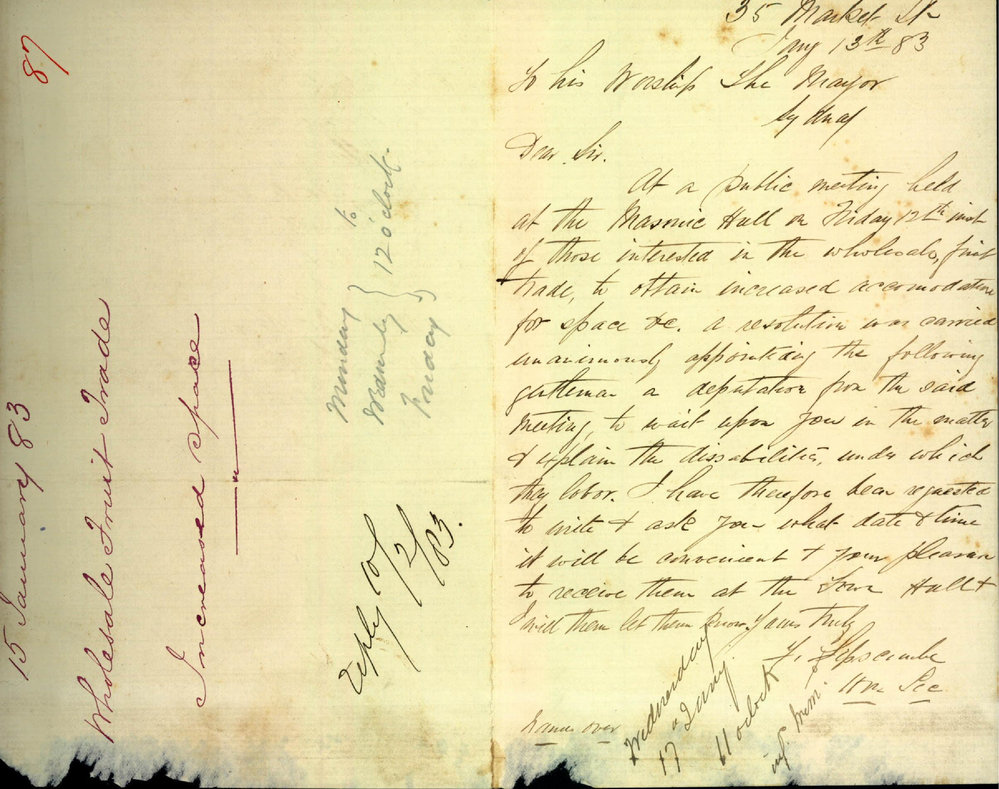 87
15 January 83
Wholesale Fruit Trade
Increased space
Monday to
Wednesday } 12 o'clock.
Friday
Reply 10/2/83.
35 Market St
Jany 13th 83
To his Worship The Mayor
Sydney
Dear Sir.
At a public meeting held
at the Masonic Hall on Friday 12th inst
of those interested in the wholesale, fruit
trade, to obtain increased accomodation
for space &c. a resolution was carried
unanimously appointing the following
gentleman a deputation from the said
Meeting, to wait upon you in the matter
& explain the dissabilities, under which
they labor. I have therefore been requested
to write & ask you what date & time
it will be convenient & your pleasure
to receive them at the Town Hall &
I will them let them know. Yours truly
F. Lipscombe
Hon Sec
names over
Wednesday
17 " Jany.
11 oclock